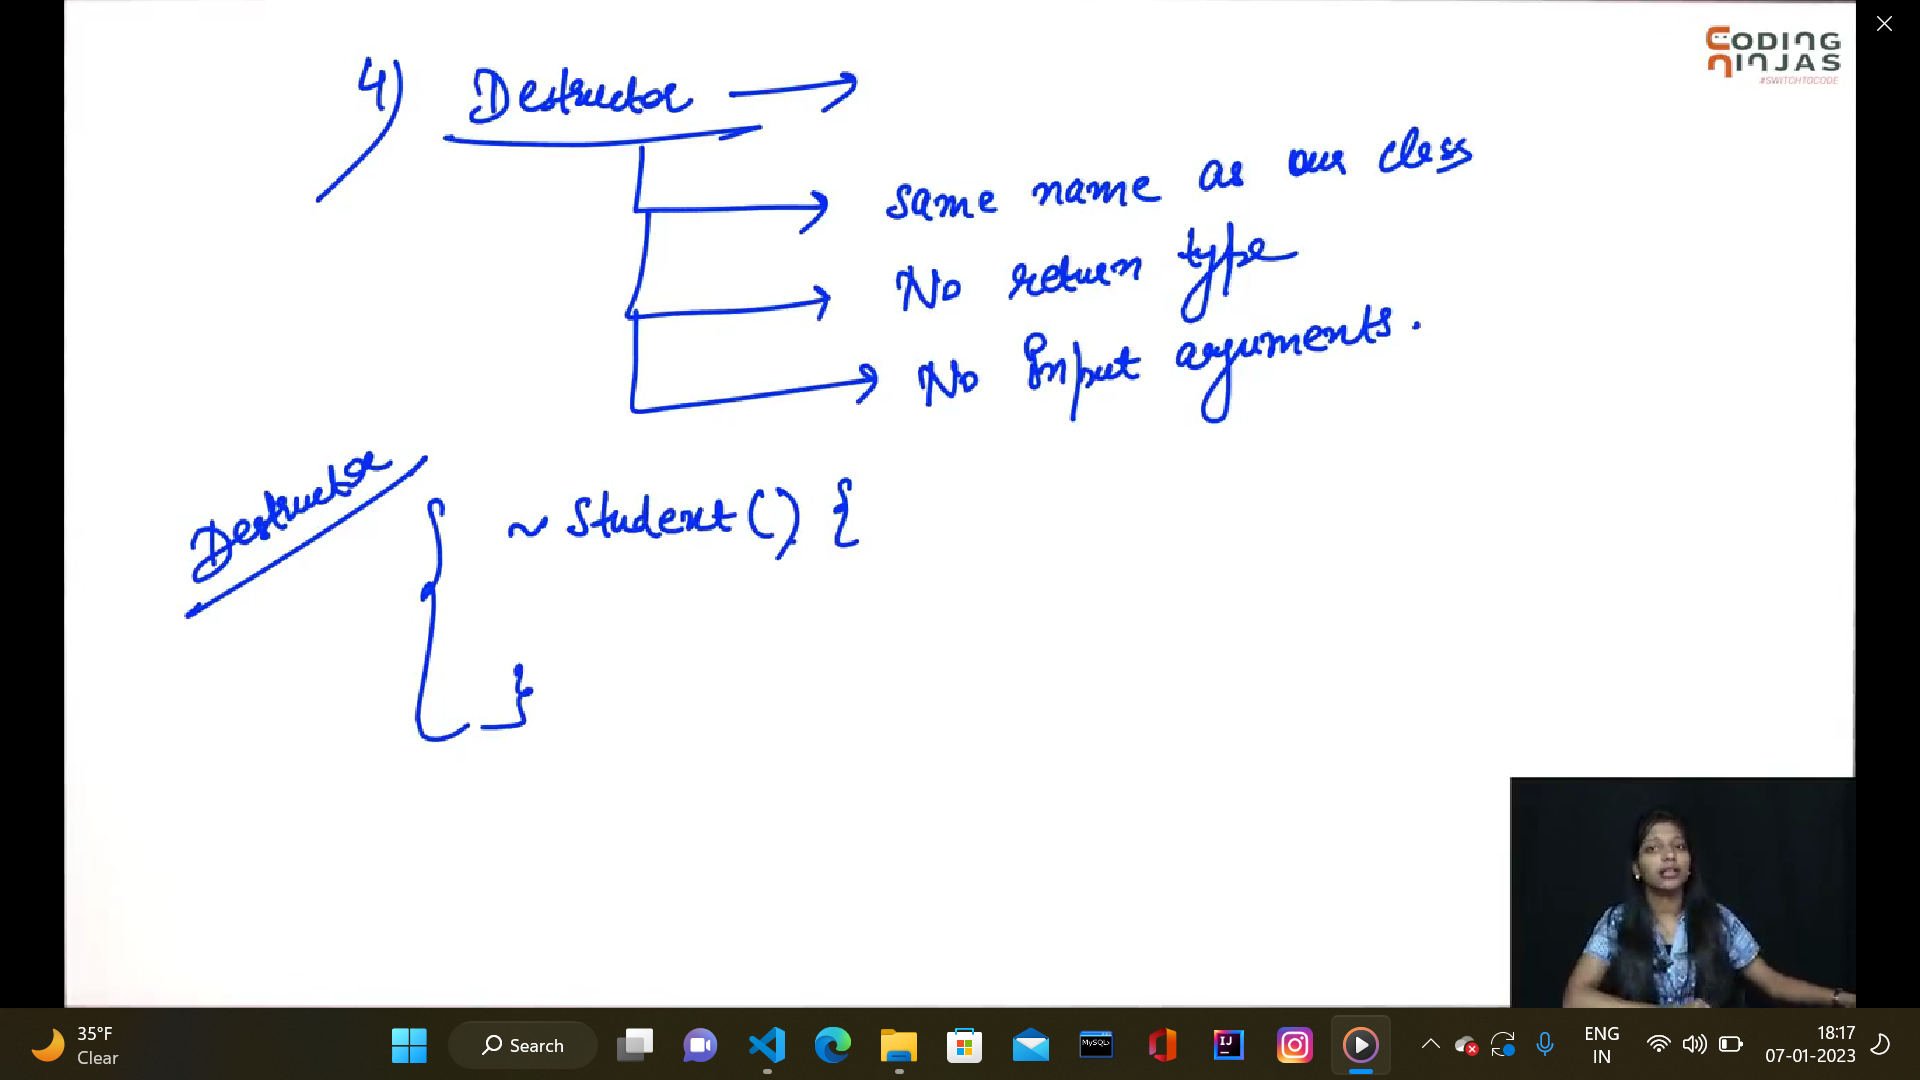 CODING
NINJAS
#SWITCHTOCODE
4) Destructor
same name as our class
No return type
No Input arguments.
Destructor
~ Student() {
}
35°F
Clear
Search
MySQL
IJ
ENG
IN
18:17
07-01-2023